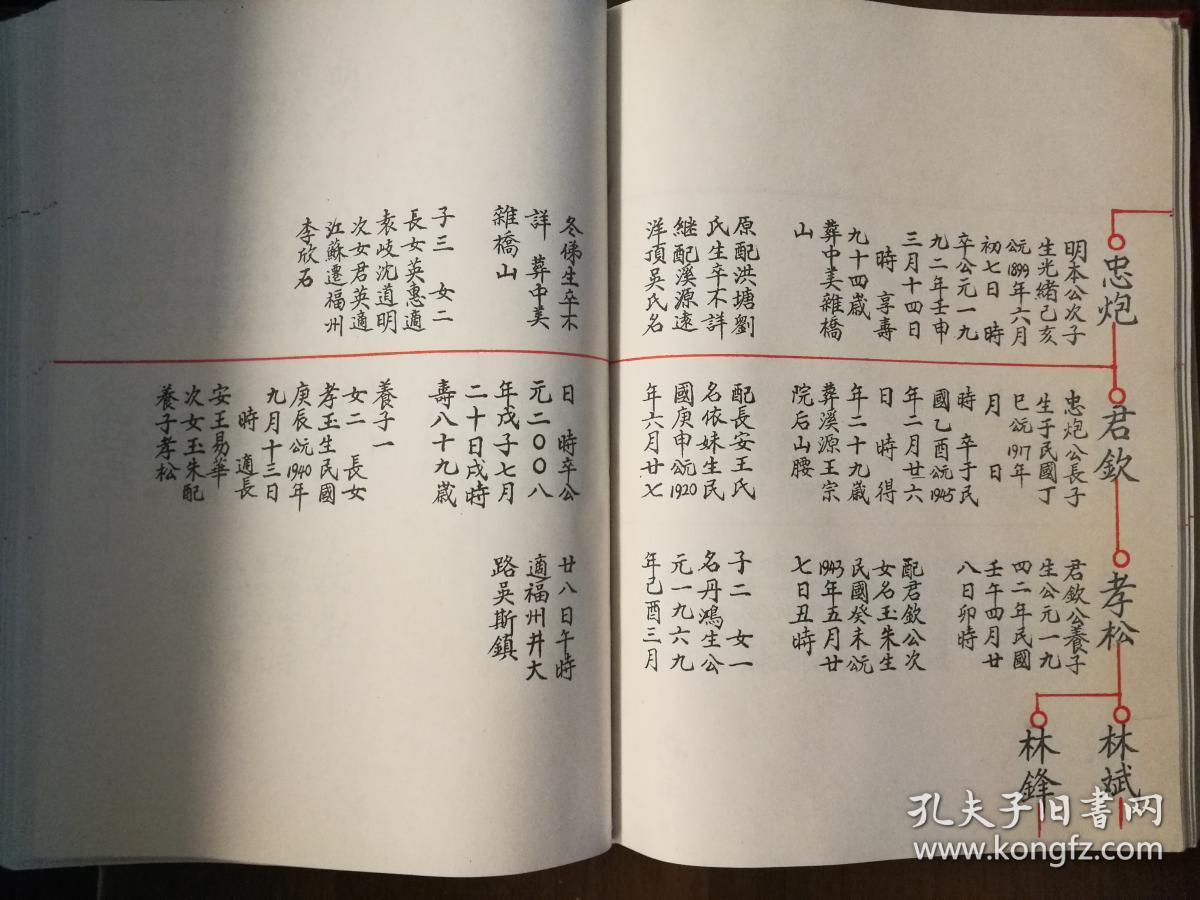 忠炮
明本公次子
生光緒己亥
公元1899年六月
初七日 時
卒公元一九
九二年壬申
三月十四日
時 享壽
九十四歲
葬中美雜橋
山
原配洪塘劉
氏生卒不詳
继配溪源遠
洋頂吳氏名
冬俤生卒不
詳 葬中美
雜橋山
子三 女二
長女英惠適
袁岐沈道明
次女君英適
江蘇遷福州
李欣石
君欽
忠炮公長子
生于民國丁
巳公元1917年
月 日
時 卒于民
國乙酉公元1945
年二月廿六
日 時 得
年二十九歲
葬溪源王宗
院后山腰
配長安王氏
名依妹生民
國庚申公元1920
年六月廿七
日 時卒公
元二〇〇八
年戊子七月
二十日戌時
壽八十九歲
養子一
女二 長女
孝玉生民國
庚辰公元1940年
九月十三日
時 適長
安王易華
次女玉朱配
養子孝松
孝松
君欽公養子
生公元一九
四二年民國
壬午四月廿
八日卯時
配君欽公次
女名玉朱生
民國癸未公元
1943年五月廿
七日丑時
子二 女一
名丹鴻生公
元一九六九
年己酉三月
廿八日午時
適福州井大
路吳斯鎮
林斌
林鋒
孔夫子旧书网
www.kongfz.com